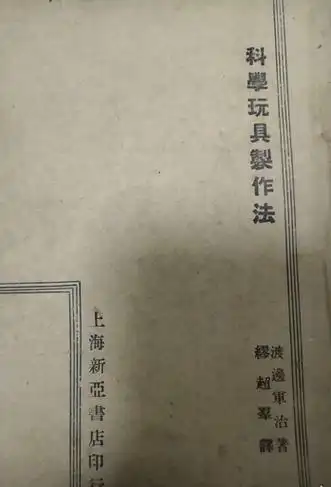 科學玩具製作法
渡邊軍治著
繆超羣譯
上海新亞書店印行